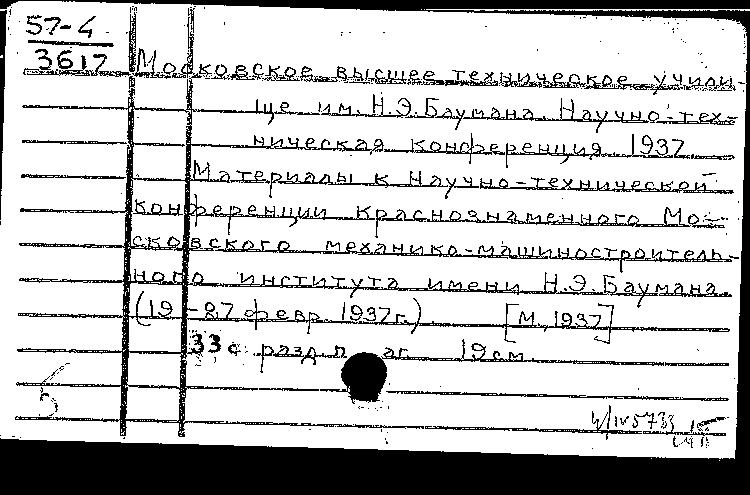 57-4
3617
Московское высшее техническое учили-
ще им. Н.Э.Баумана. Научно-тех-
ническая конференция. 1937
Материалы к Научно-технической
конференции краснознаменного Мо-
сковского механико-машиностроитель-
ного института имени Н.Э.Баумана.
(19-27 февр. 1937г.) [М., 1937]
33 с разд. п аг. 19см.